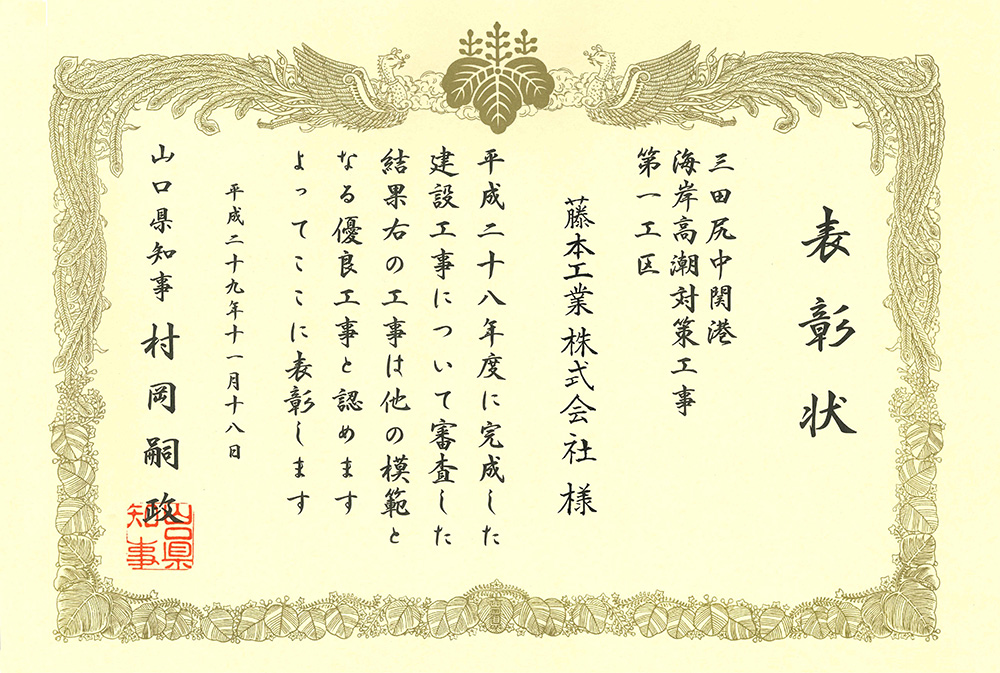 表彰状
三田尻中関港
海岸高潮対策工事
第一工区
藤本工業株式会社様
平成二十八年度に完成した
建設工事について審査した
結果右の工事は他の模範と
なる優良工事と認めます
よってここに表彰します
平成二十九年十一月十八日
山口県知事 村岡嗣政
山口県
知事